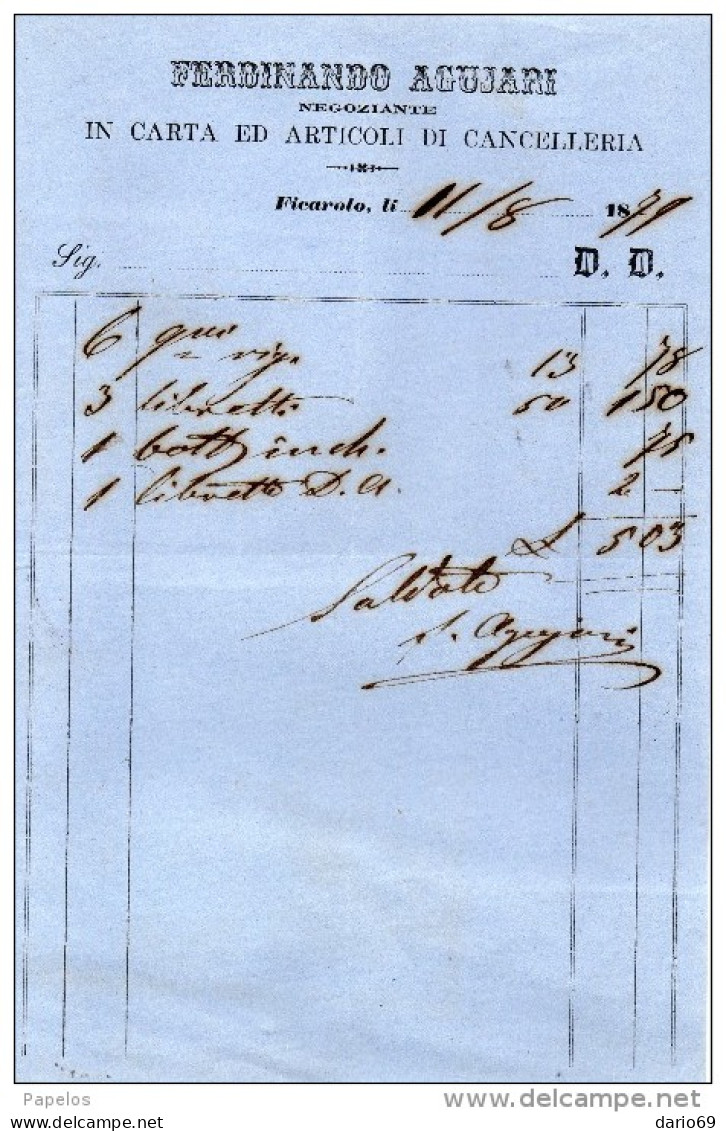 FERDINANDO AGUJARI
NEGOZIANTE
IN CARTA ED ARTICOLI DI CANCELLERIA
Ficarolo, li 11/8 1879
Sig. D. D.
6 qni
" rig. 13 78
3 libretti 50 1 50
1 bott inch. 75
1 libretto D. A. 2 —
L 5 03
Saldato
F. Agujari
Papelos
delcampe.net
dario69